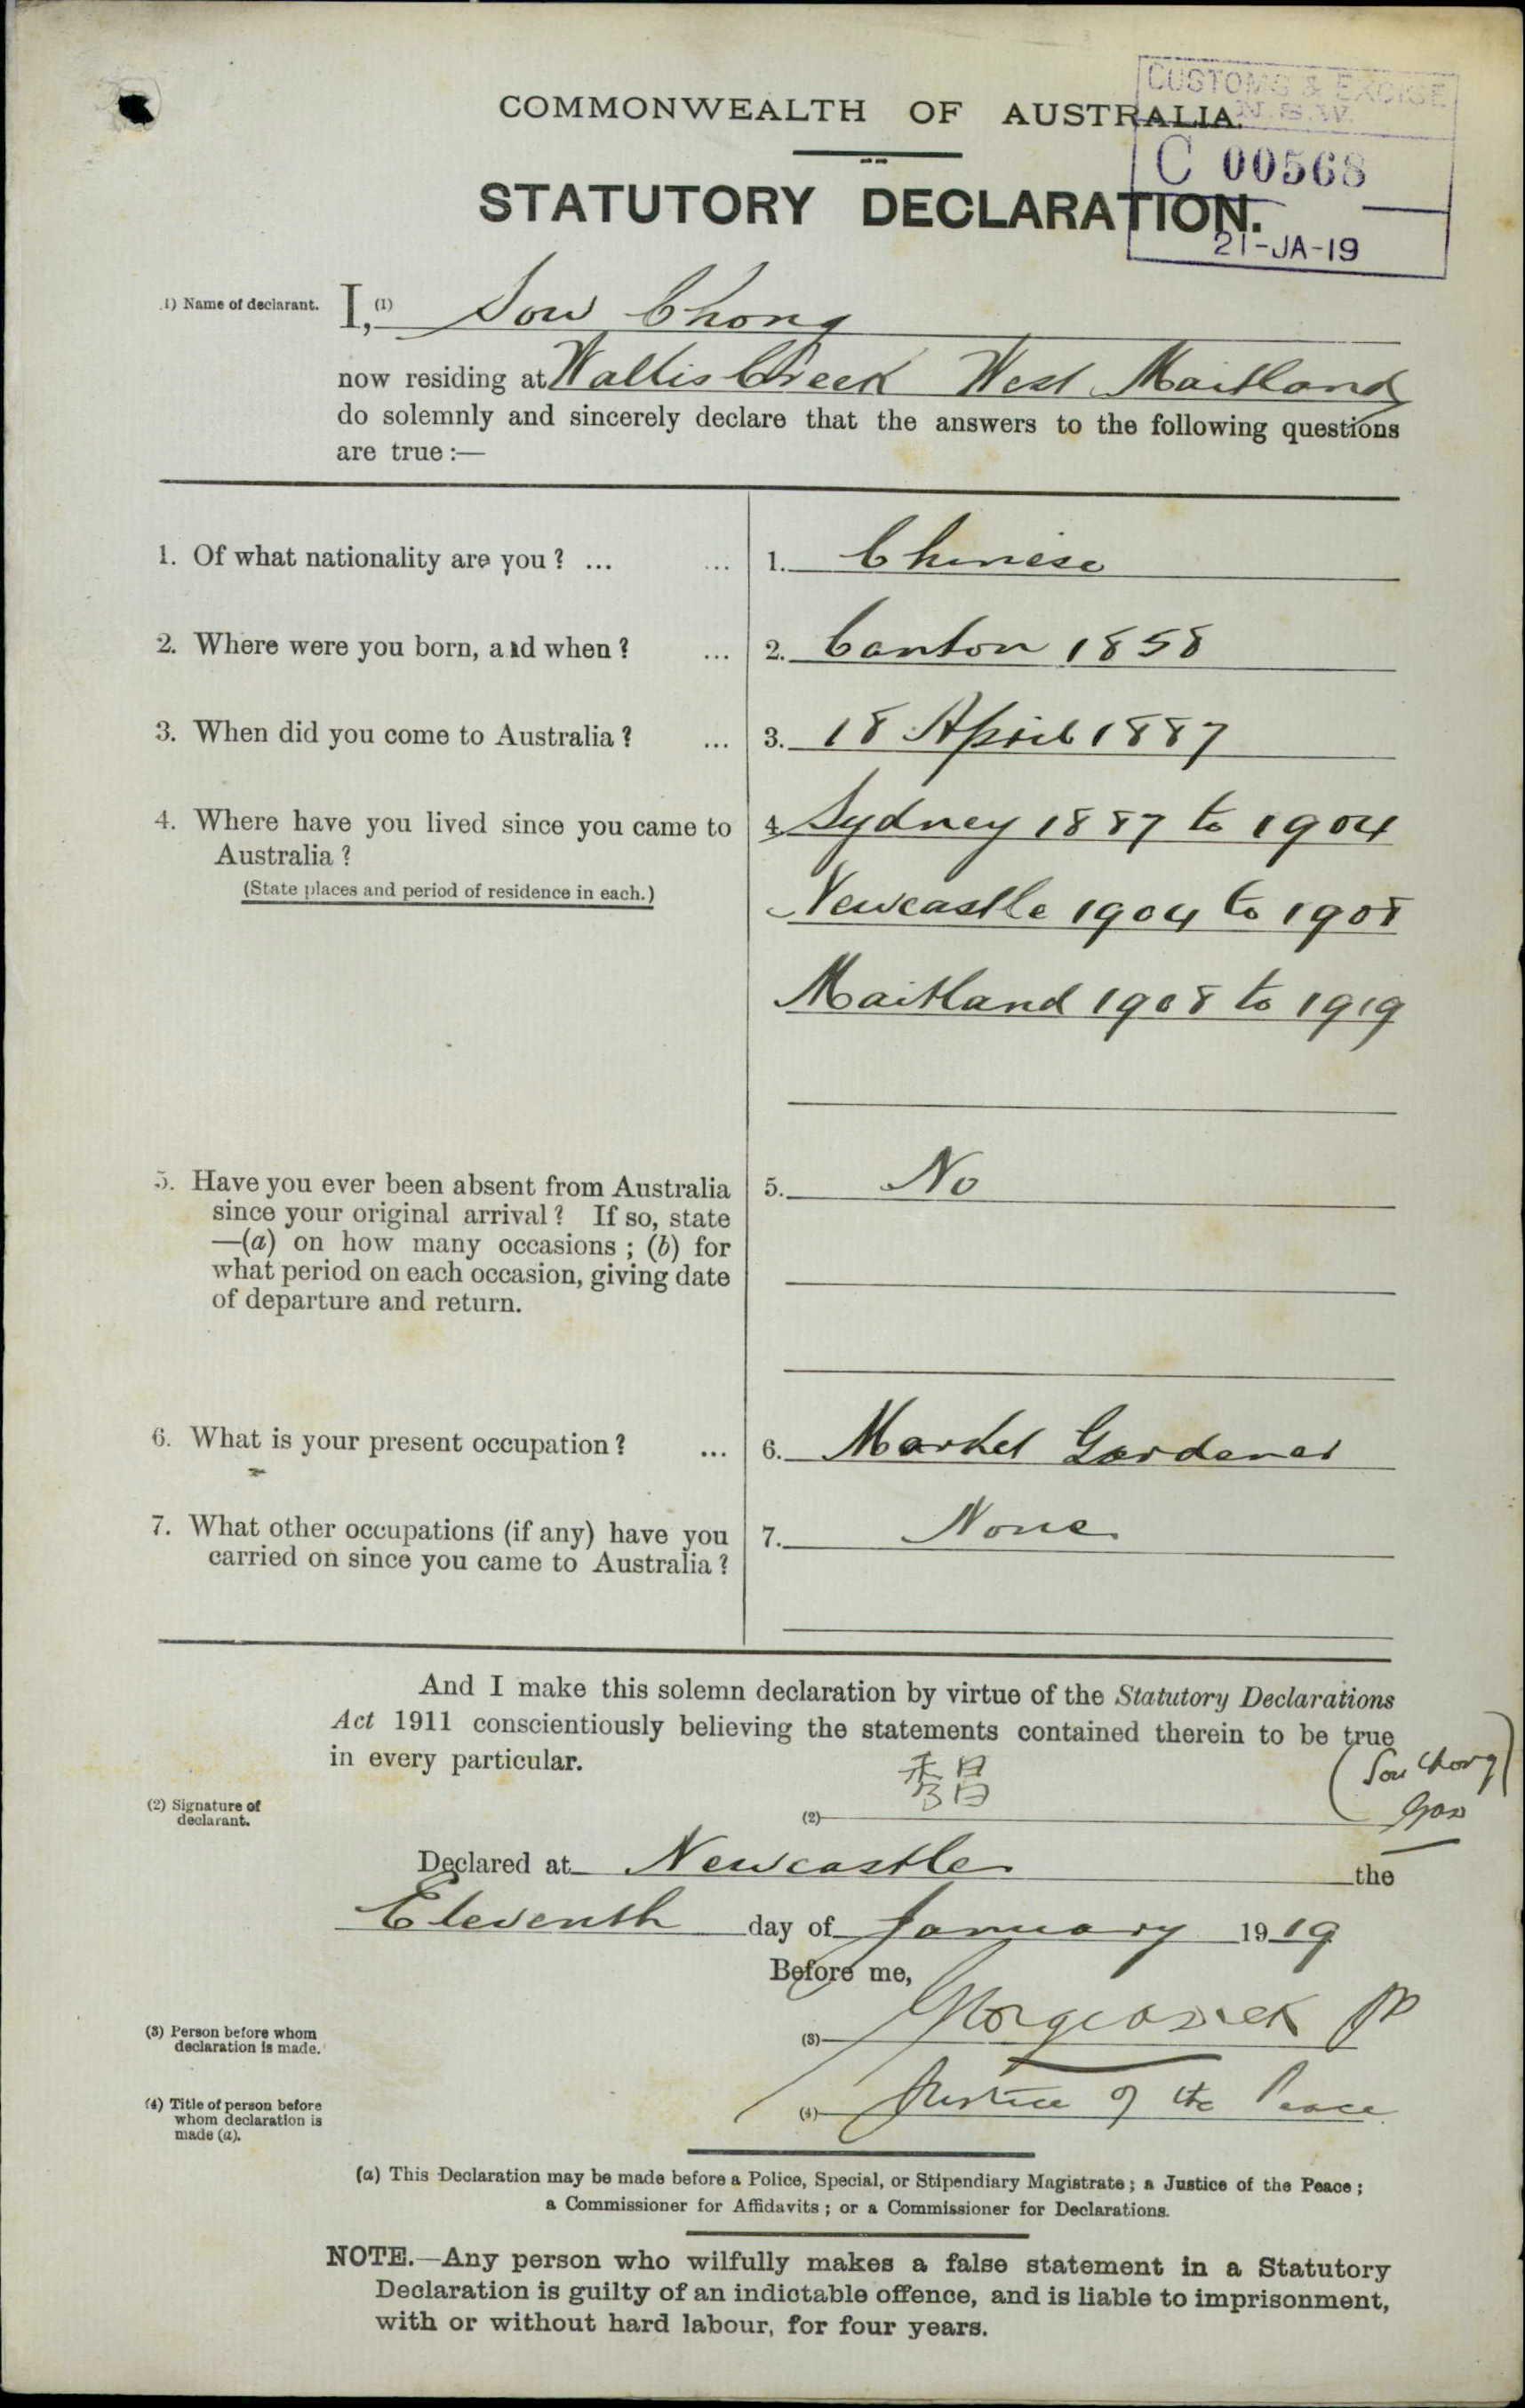 CUSTOMS & EXCISE
N.S.W.
COMMONWEALTH OF AUSTRALIA.
C 00568
STATUTORY DECLARATION.
21-JA-19
(1) Name of declarant. I, (1) Sow Chong
now residing at Wallis Creek West Maitland
do solemnly and sincerely declare that the answers to the following questions
are true :—
1. Of what nationality are you ? ... ... 1. Chinese
2. Where were you born, and when ? ... 2. Canton 1858
3. When did you come to Australia ? ... 3. 18 April 1887
4. Where have you lived since you came to 4. Sydney 1887 to 1904
Australia ?
(State places and period of residence in each.)
Newcastle 1904 to 1908
Maitland 1908 to 1919
5. Have you ever been absent from Australia 5. No
since your original arrival ? If so, state
—(a) on how many occasions ; (b) for
what period on each occasion, giving date
of departure and return.
6. What is your present occupation ? ... 6. Market Gardener
7. What other occupations (if any) have you 7. None
carried on since you came to Australia ?
And I make this solemn declaration by virtue of the Statutory Declarations
Act 1911 conscientiously believing the statements contained therein to be true
in every particular.
秀昌 (Sow Chong)
(2) Signature of
declarant.
(2)
Declared at Newcastle the
Eleventh day of January 1919
Before me,
(3) Person before whom
declaration is made.
(3) JP
(4) Title of person before
whom declaration is
made (a).
(4) Justice of the Peace
(a) This Declaration may be made before a Police, Special, or Stipendiary Magistrate ; a Justice of the Peace ;
a Commissioner for Affidavits ; or a Commissioner for Declarations.
NOTE.—Any person who wilfully makes a false statement in a Statutory
Declaration is guilty of an indictable offence, and is liable to imprisonment,
with or without hard labour, for four years.